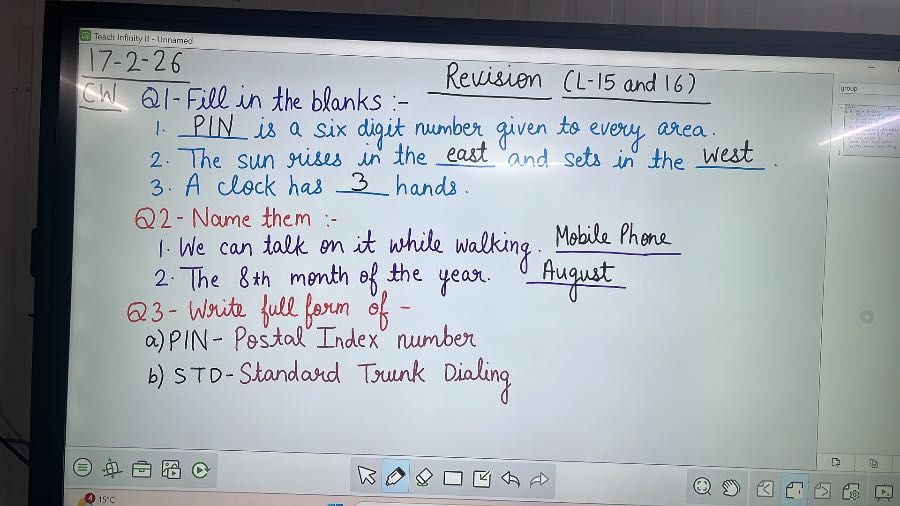 Teach Infinity II - Unnamed
17-2-26
Revision (L-15 and 16)
CW Q1-Fill in the blanks :-
1. PIN is a six digit number given to every area.
2. The sun rises in the east and sets in the west.
3. A clock has 3 hands.
Q2-Name them :-
1. We can talk on it while walking. Mobile Phone
2. The 8th month of the year. August
Q3- Write full form of -
a) PIN- Postal Index number
b) STD-Standard Trunk Dialing
group
4
15°C